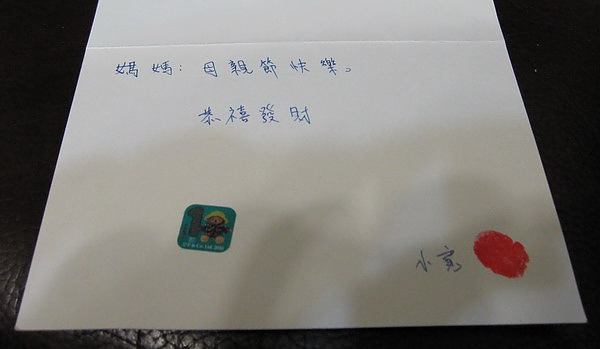 媽媽：母親節快樂。
恭禧發財
1
小寬